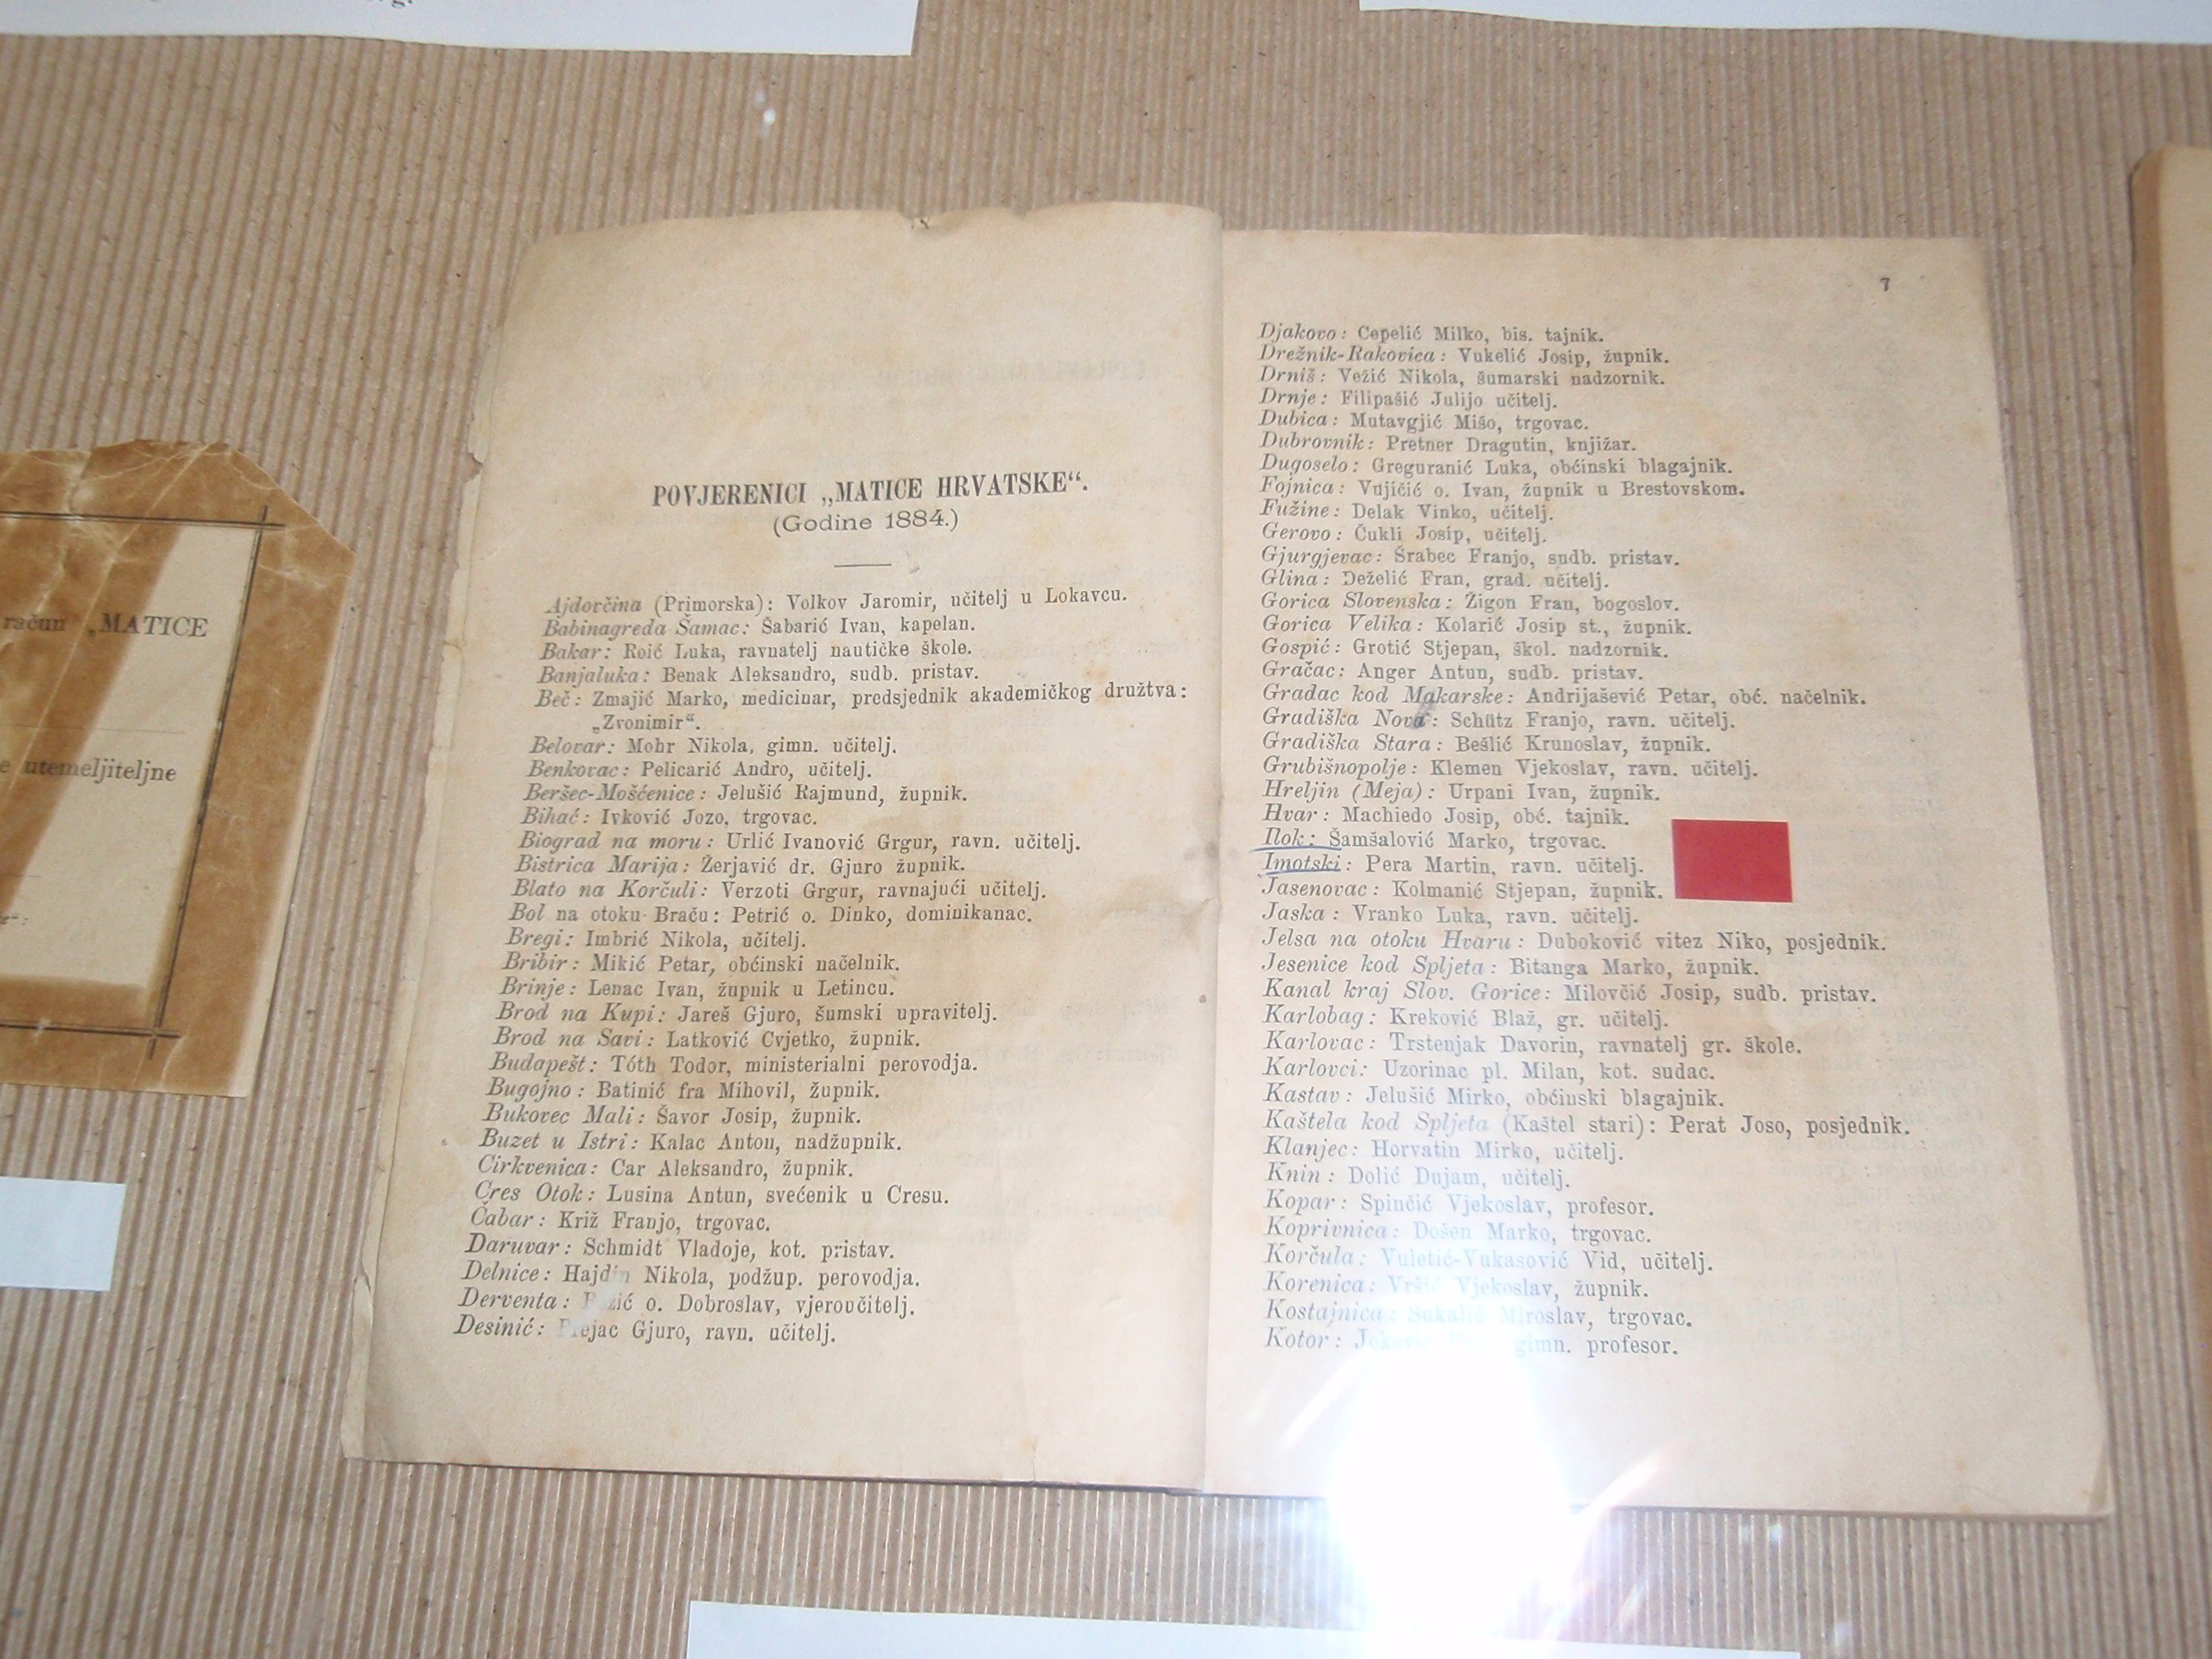 račun „MATICE
e utemeljiteljne
POVJERENICI „MATICE HRVATSKE“.
(Godine 1884.)
Ajdovčina (Primorska): Volkov Jaromir, učitelj u Lokavcu.
Babinagreda Šamac: Šabarić Ivan, kapelan.
Bakar: Roić Luka, ravnatelj nautičke škole.
Banjaluka: Benak Aleksandro, sudb. pristav.
Beč: Zmajić Marko, medicinar, predsjednik akademičkog družtva:
„Zvonimir“.
Belovar: Mohr Nikola, gimn. učitelj.
Benkovac: Pelicarić Andro, učitelj.
Beršec-Mošćenice: Jelušić Rajmund, župnik.
Bihać: Ivković Jozo, trgovac.
Biograd na moru: Urlić Ivanović Grgur, ravn. učitelj.
Bistrica Marija: Žerjavić dr. Gjuro župnik.
Blato na Korčuli: Verzoti Grgur, ravnajući učitelj.
Bol na otoku Braču: Petrić o. Dinko, dominikanac.
Bregi: Imbrić Nikola, učitelj.
Bribir: Mikić Petar, obćinski načelnik.
Brinje: Lenac Ivan, župnik u Letincu.
Brod na Kupi: Jareš Gjuro, šumski upravitelj.
Brod na Savi: Latković Cvjetko, župnik.
Budapešt: Tóth Todor, ministerialni perovodja.
Bugojno: Batinić fra Mihovil, župnik.
Bukovec Mali: Šavor Josip, župnik.
Buzet u Istri: Kalac Anton, nadžupnik.
Cirkvenica: Car Aleksandro, župnik.
Cres Otok: Lusina Antun, svećenik u Cresu.
Čabar: Križ Franjo, trgovac.
Daruvar: Schmidt Vladoje, kot. pristav.
Delnice: Nikola, podžup. perovodja.
Derventa: o. Dobroslav, vjeroučitelj.
Desinić: Gjuro, ravn. učitelj.
7
Djakovo: Cepelić Milko, bis. tajnik.
Drežnik-Rakovica: Vukelić Josip, župnik.
Drniš: Vežić Nikola, šumarski nadzornik.
Drnje: Filipašić Julijo učitelj.
Dubica: Mutavgjić Mišo, trgovac.
Dubrovnik: Pretner Dragutin, knjižar.
Dugoselo: Greguranić Luka, obćinski blagajnik.
Fojnica: Vujičić o. Ivan, župnik u Brestovskom.
Fužine: Delak Vinko, učitelj.
Gerovo: Čukli Josip, učitelj.
Gjurgjevac: Šrabec Franjo, sudb. pristav.
Glina: Deželić Fran, grad. učitelj.
Gorica Slovenska: Žigon Fran, bogoslov.
Gorica Velika: Kolarić Josip st., župnik.
Gospić: Grotić Stjepan, škol. nadzornik.
Gračac: Anger Antun, sudb. pristav.
Gradac kod Makarske: Andrijašević Petar, obć. načelnik.
Gradiška Nova: Schütz Franjo, ravn. učitelj.
Gradiška Stara: Bešlić Krunoslav, župnik.
Grubišnopolje: Klemen Vjekoslav, ravn. učitelj.
Hreljin (Meja): Urpani Ivan, župnik.
Hvar: Machiedo Josip, obć. tajnik.
Ilok: Šamšalović Marko, trgovac.
Imotski: Pera Martin, ravn. učitelj.
Jasenovac: Kolmanić Stjepan, župnik.
Jaska: Vranko Luka, ravn. učitelj.
Jelsa na otoku Hvaru: Duboković vitez Niko, posjednik.
Jesenice kod Spljeta: Bitanga Marko, župnik.
Kanal kraj Slov. Gorice: Milovčić Josip, sudb. pristav.
Karlobag: Kreković Blaž, gr. učitelj.
Karlovac: Trstenjak Davorin, ravnatelj gr. škole.
Karlovci: Uzorinac pl. Milan, kot. sudac.
Kastav: Jelušić Mirko, obćinski blagajnik.
Kaštela kod Spljeta (Kaštel stari): Perat Joso, posjednik.
Klanjec: Horvatin Mirko, učitelj.
Knin: Dolić Dujam, učitelj.
Kopar: Spinčić Vjekoslav, profesor.
Koprivnica: Došen Marko, trgovac.
Korčula: Vuletić-Vukasović Vid, učitelj.
Korenica: Vršić Vjekoslav, župnik.
Kostajnica: Sukalić Miroslav, trgovac.
Kotor: gimn. profesor.